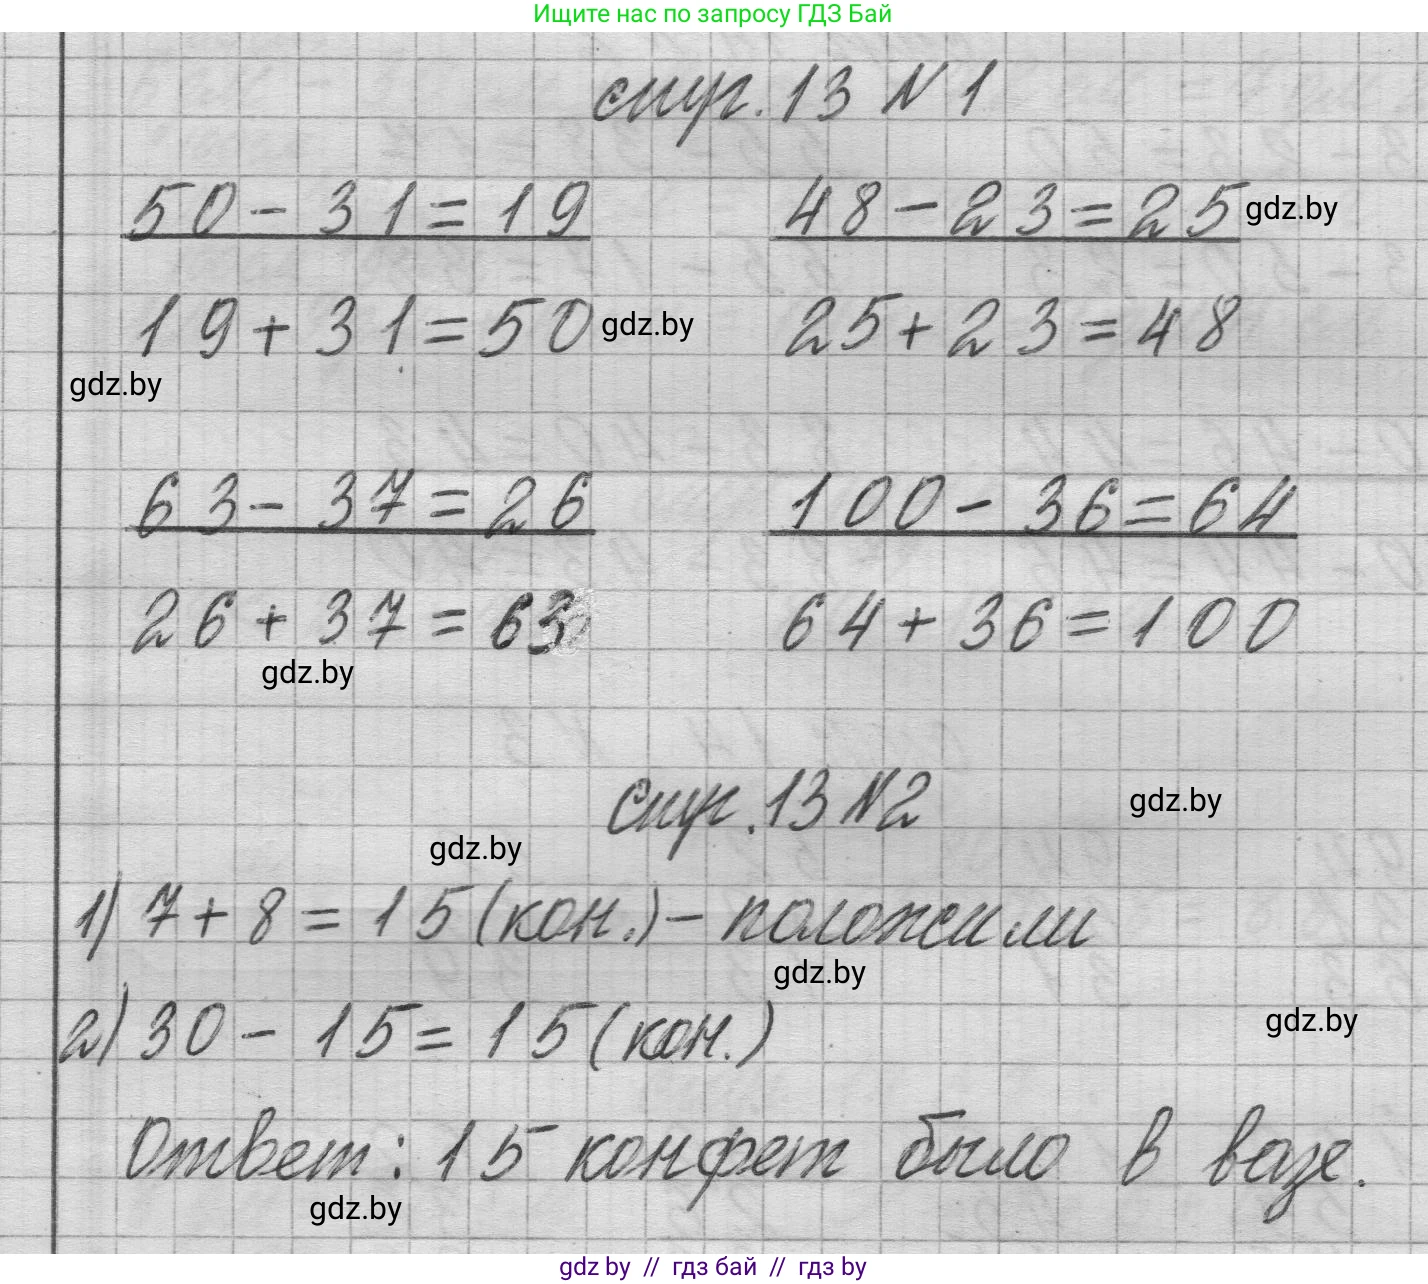 Ищите нас по запросу ГДЗ Бай
стр. 13 N 1
50 - 31 = 19 48 - 23 = 25 gdz.by
19 + 31 = 50 gdz.by 25 + 23 = 48
gdz.by
63 - 37 = 26 100 - 36 = 64
26 + 37 = 63 64 + 36 = 100
gdz.by
стр. 13 N2 gdz.by
gdz.by
1) 7 + 8 = 15 (кон.) - положили
gdz.by
2) 30 - 15 = 15 (кон.) gdz.by
Ответ: 15 конфет было в вазе.
gdz.by
gdz by // гдз бай // гдз by